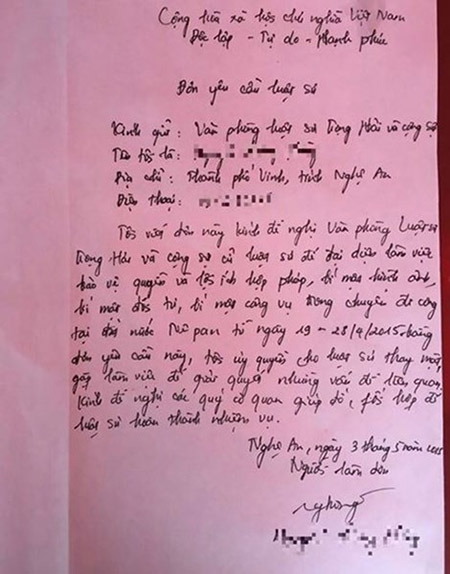 Cộng hòa xã hội chủ nghĩa Việt Nam
Độc lập - Tự do - Hạnh phúc
Đơn yêu cầu luật sư
Kính gửi: Văn phòng luật sư Trọng Hải và cộng sự
Tên tôi là:
Địa chỉ: Thành phố Vinh, tỉnh Nghệ An
Điện thoại:
Tôi viết đơn này kính đề nghị Văn phòng Luật sư
Trọng Hải và cộng sự cử luật sư để đại diện làm việc
bảo vệ quyền và lợi ích hợp pháp, bí mật hình ảnh,
bí mật đời tư, bí mật công vụ trong chuyến đi công
tại đất nước Nê pan từ ngày 19 - 28/4/2015. Bằng
đơn yêu cầu này, tôi ủy quyền cho luật sư thay mặt,
gặp làm việc để giải quyết những vấn đề liên quan.
Kính đề nghị các quý cơ quan giúp đỡ, phối hợp để
luật sư hoàn thành nhiệm vụ.
Nghệ An, ngày 3 tháng 5 năm 2015
Người làm đơn